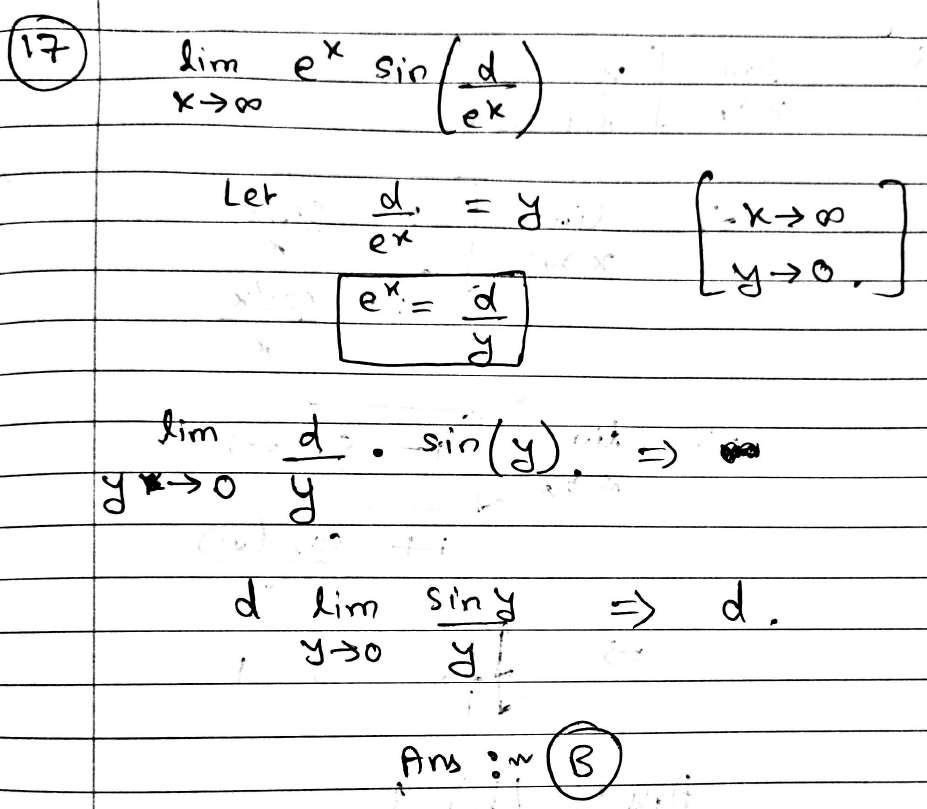 17
lim e^x sin(d/e^x)
x→∞
Let d/e^x = y [x→∞
y→0.]
e^x = d/y
lim d/y . sin(y). ⇒
y→0
d lim sin y/y ⇒ d.
y→0
Ans :~ B